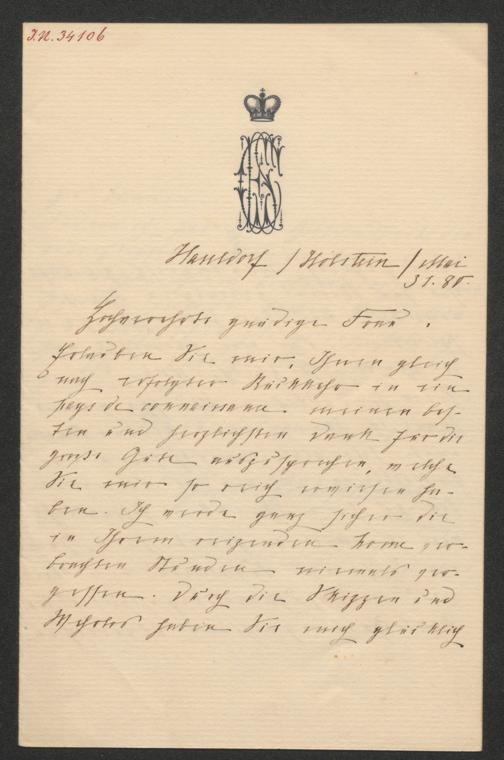 I.N. 34106
Haseldorf / Holstein / Mai
31. 80.
Hochverehrte gnädige Frau.
Erlauben Sie mir, Ihnen gleich
nach erfolgter Rückkehr in ein
pays de connaissance meinen bes-
ten und herzlichsten Dank für die
große Güte auszusprechen, welche
Sie mir so reich erwiesen ha-
ben. Ich werde ganz sicher die
in Ihrem reizenden Home ver-
brachten Stunden niemals ver-
gessen. Durch die Skizzen und
haben Sie mich glücklich